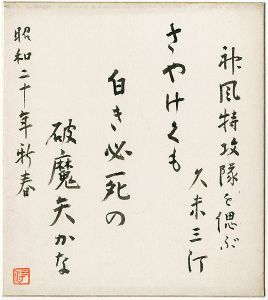 神風特攻隊を偲ぶ
久末三汀
さやけくも
白き必死の
破魔矢かな
昭和二十年新春